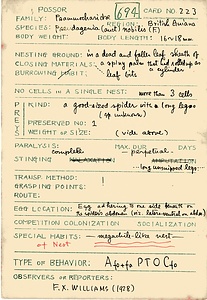 POSSOR 694 CARD NO. 223
FAMILY: Psammocharidae REGION: British Guiana
SPECIES: nobilis (F)
BODY WEIGHT: BODY LENGTH: 16-18 mm
NESTING GROUND: in a dead and fallen leaf sheath of
CLOSING MATERIALS: a spiny palm that had rolled up
BURROWING HABIT: leaf bits a cylinder
NO. CELLS IN A SINGLE NEST: more than 3 cells
PREY
KIND: a good-sized spider with a long legs
(sp. unknown)
PRESERVED NO. 1
WEIGHT OR SIZE: (vide above)
PARALYSIS: complete MAX. DUR. perpetual DAYS
STINGING
... long unmipped legs
TRANSP. METHOD:
GRASPING POINTS:
ROUTE:
EGG LOCATION: Egg adhering to one side beneath on
the spider's abdomen
COMPETITION COLONIZATION SOCIALIZATION
SPECIAL HABITS: — megachile-like nest —
of Nest
TYPE OF BEHAVIOR:
OBSERVERS OR REPORTERS:
F.X. WILLIAMS (1928)